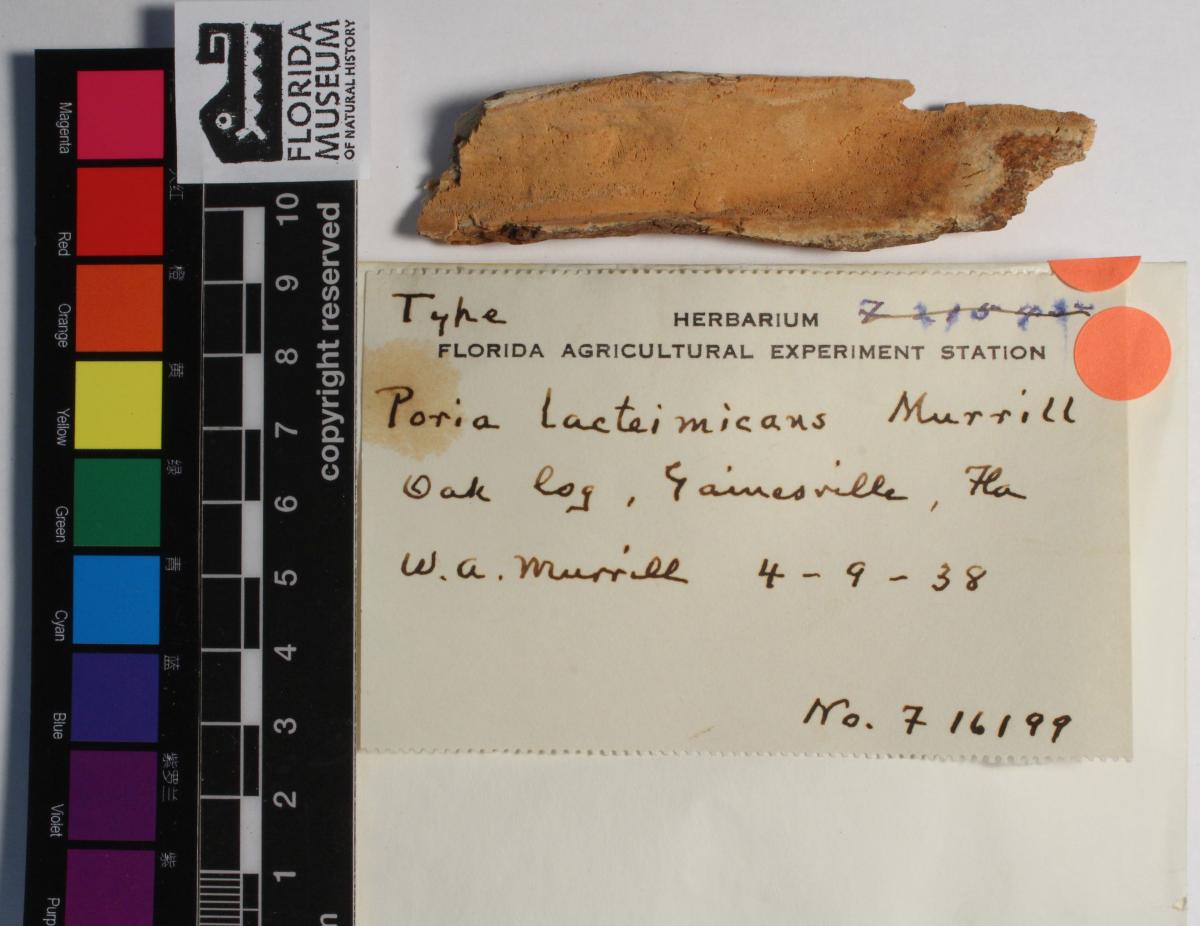 FLORIDA
MUSEUM
OF NATURAL HISTORY
Magenta
Red
Orange
Yellow
Green
Cyan
Blue
Violet
Purp
红
橙
黄
绿
青
蓝
紫罗兰
紫
10
9
8
7
6
5
4
3
2
1
copyright reserved
Type
HERBARIUM
FLORIDA AGRICULTURAL EXPERIMENT STATION
Poria lacteimicans Murrill
Oak log, Gainesville, Fla
W.A. Murrill 4-9-38
No. F 16199